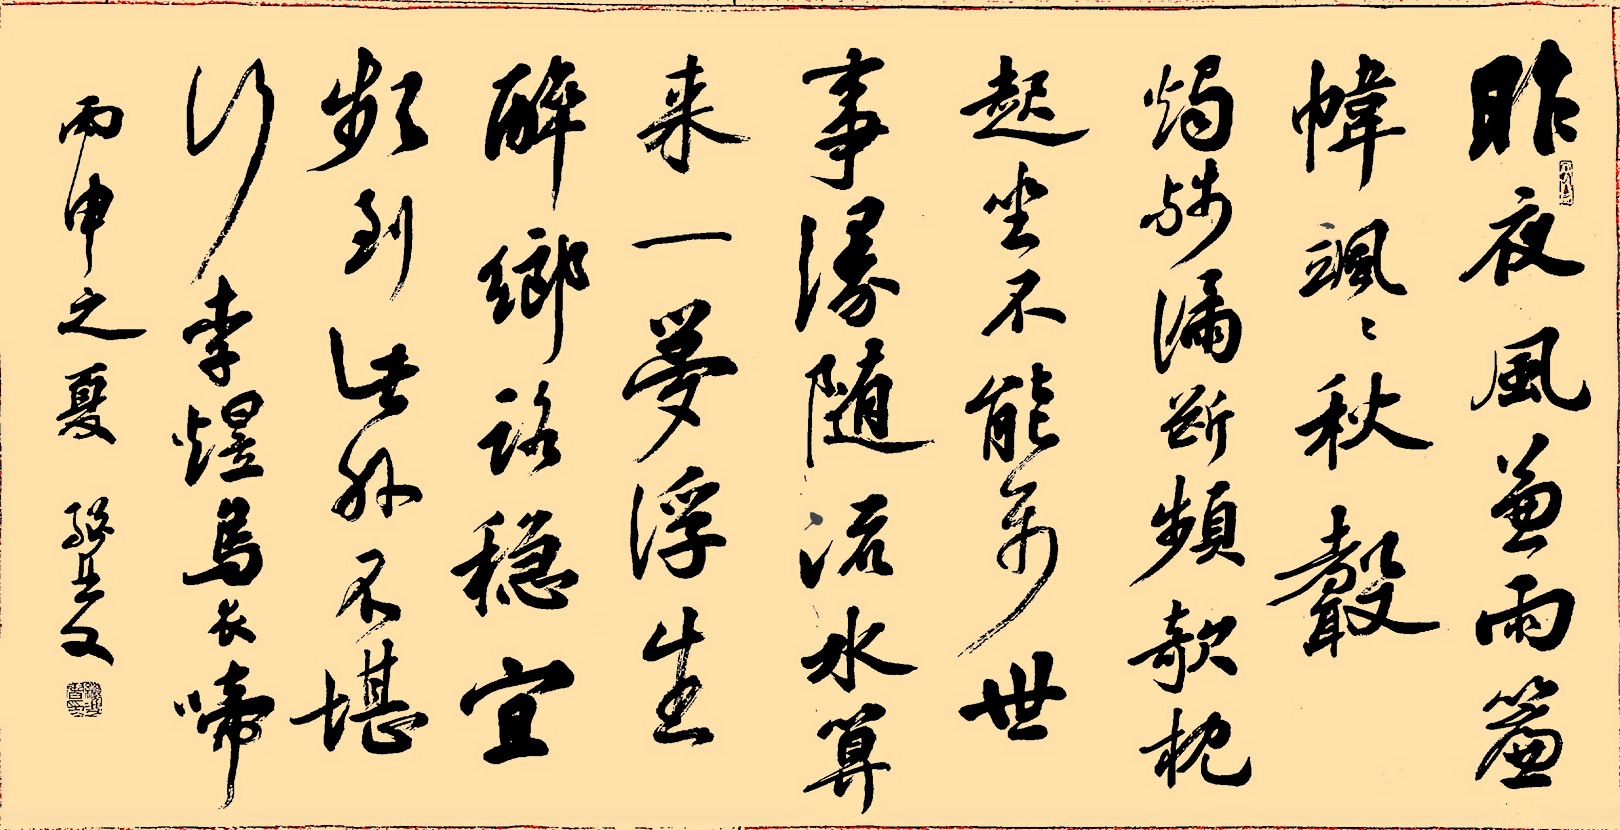 昨夜風兼雨簾
幃颯〻秋聲
燭殘漏斷頻欹枕
起坐不能平世
事漫随流水算
来一夢浮生
醉鄉路穩宜
頻到此外不堪
行李煜烏夜啼
丙申之夏